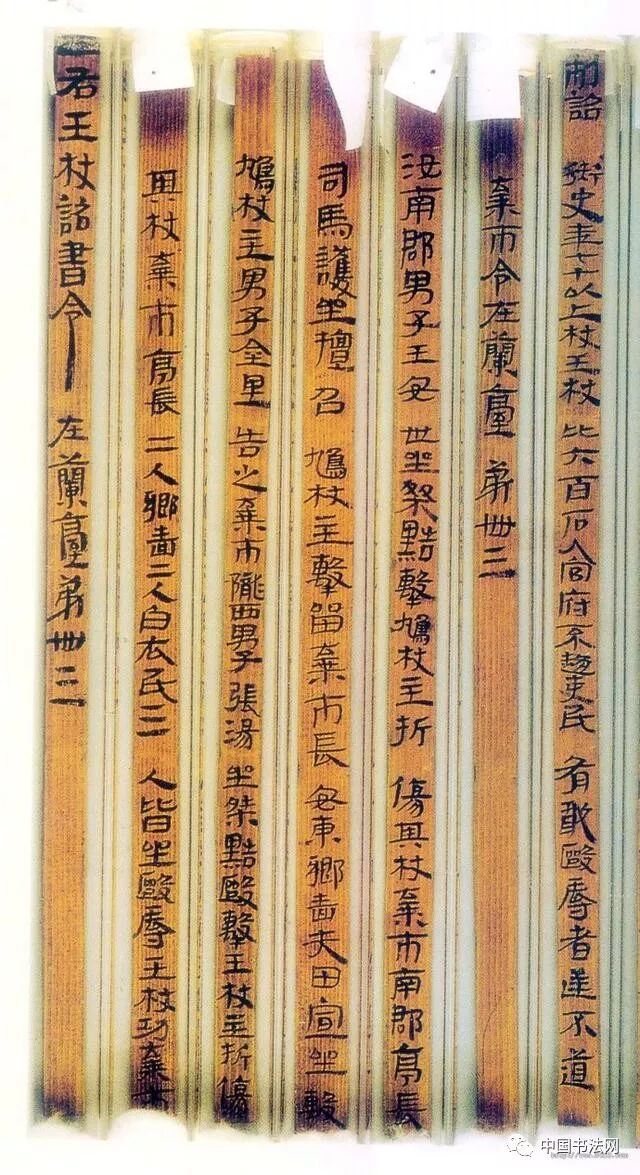 制詔 御史年七十以上杖王杖比六百石入官府不趨吏民有敢毆辱者逆不道
棄市令在蘭臺弟卌三
汝南郡男子王安世坐桀黠擊鳩杖主折傷其杖棄市南郡亭長
司馬護坐擅召鳩杖主擊留棄市長安東鄉嗇夫田宣坐擊
鳩杖主男子金里告之棄市隴西男子張湯坐桀黠毆擊王杖主折傷
其杖棄市亭長二人鄉嗇二人白衣民三人皆坐毆辱王杖功棄市
右王杖詔書令 在蘭臺弟卌三
中国书法网